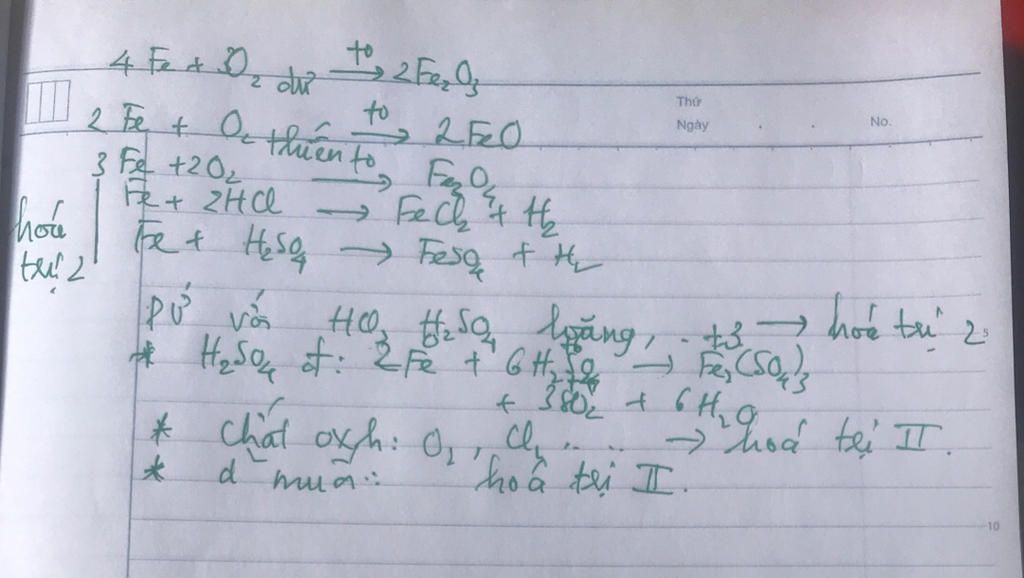 4 Fe + 3O₂ dư —t⁰→ 2Fe₂O₃
Thứ
Ngày . . No.
2 Fe + O₂ thiếu —t⁰→ 2FeO
3 Fe + 2O₂ —t⁰→ Fe₃O₄
Fe + 2HCl → FeCl₂ + H₂
Fe + H₂SO₄ → FeSO₄ + H₂
hoá
trị 2
PỨ với HCl, H₂SO₄ loãng, → hoá trị 2
* H₂SO₄ đ: 2Fe + 6H₂SO₄ → Fe₂(SO₄)₃
+ 3SO₂ + 6H₂O
* Chất oxh: O₂, Cl₂ ..... → hoá trị II.
* d² muối: hoá trị II.
10